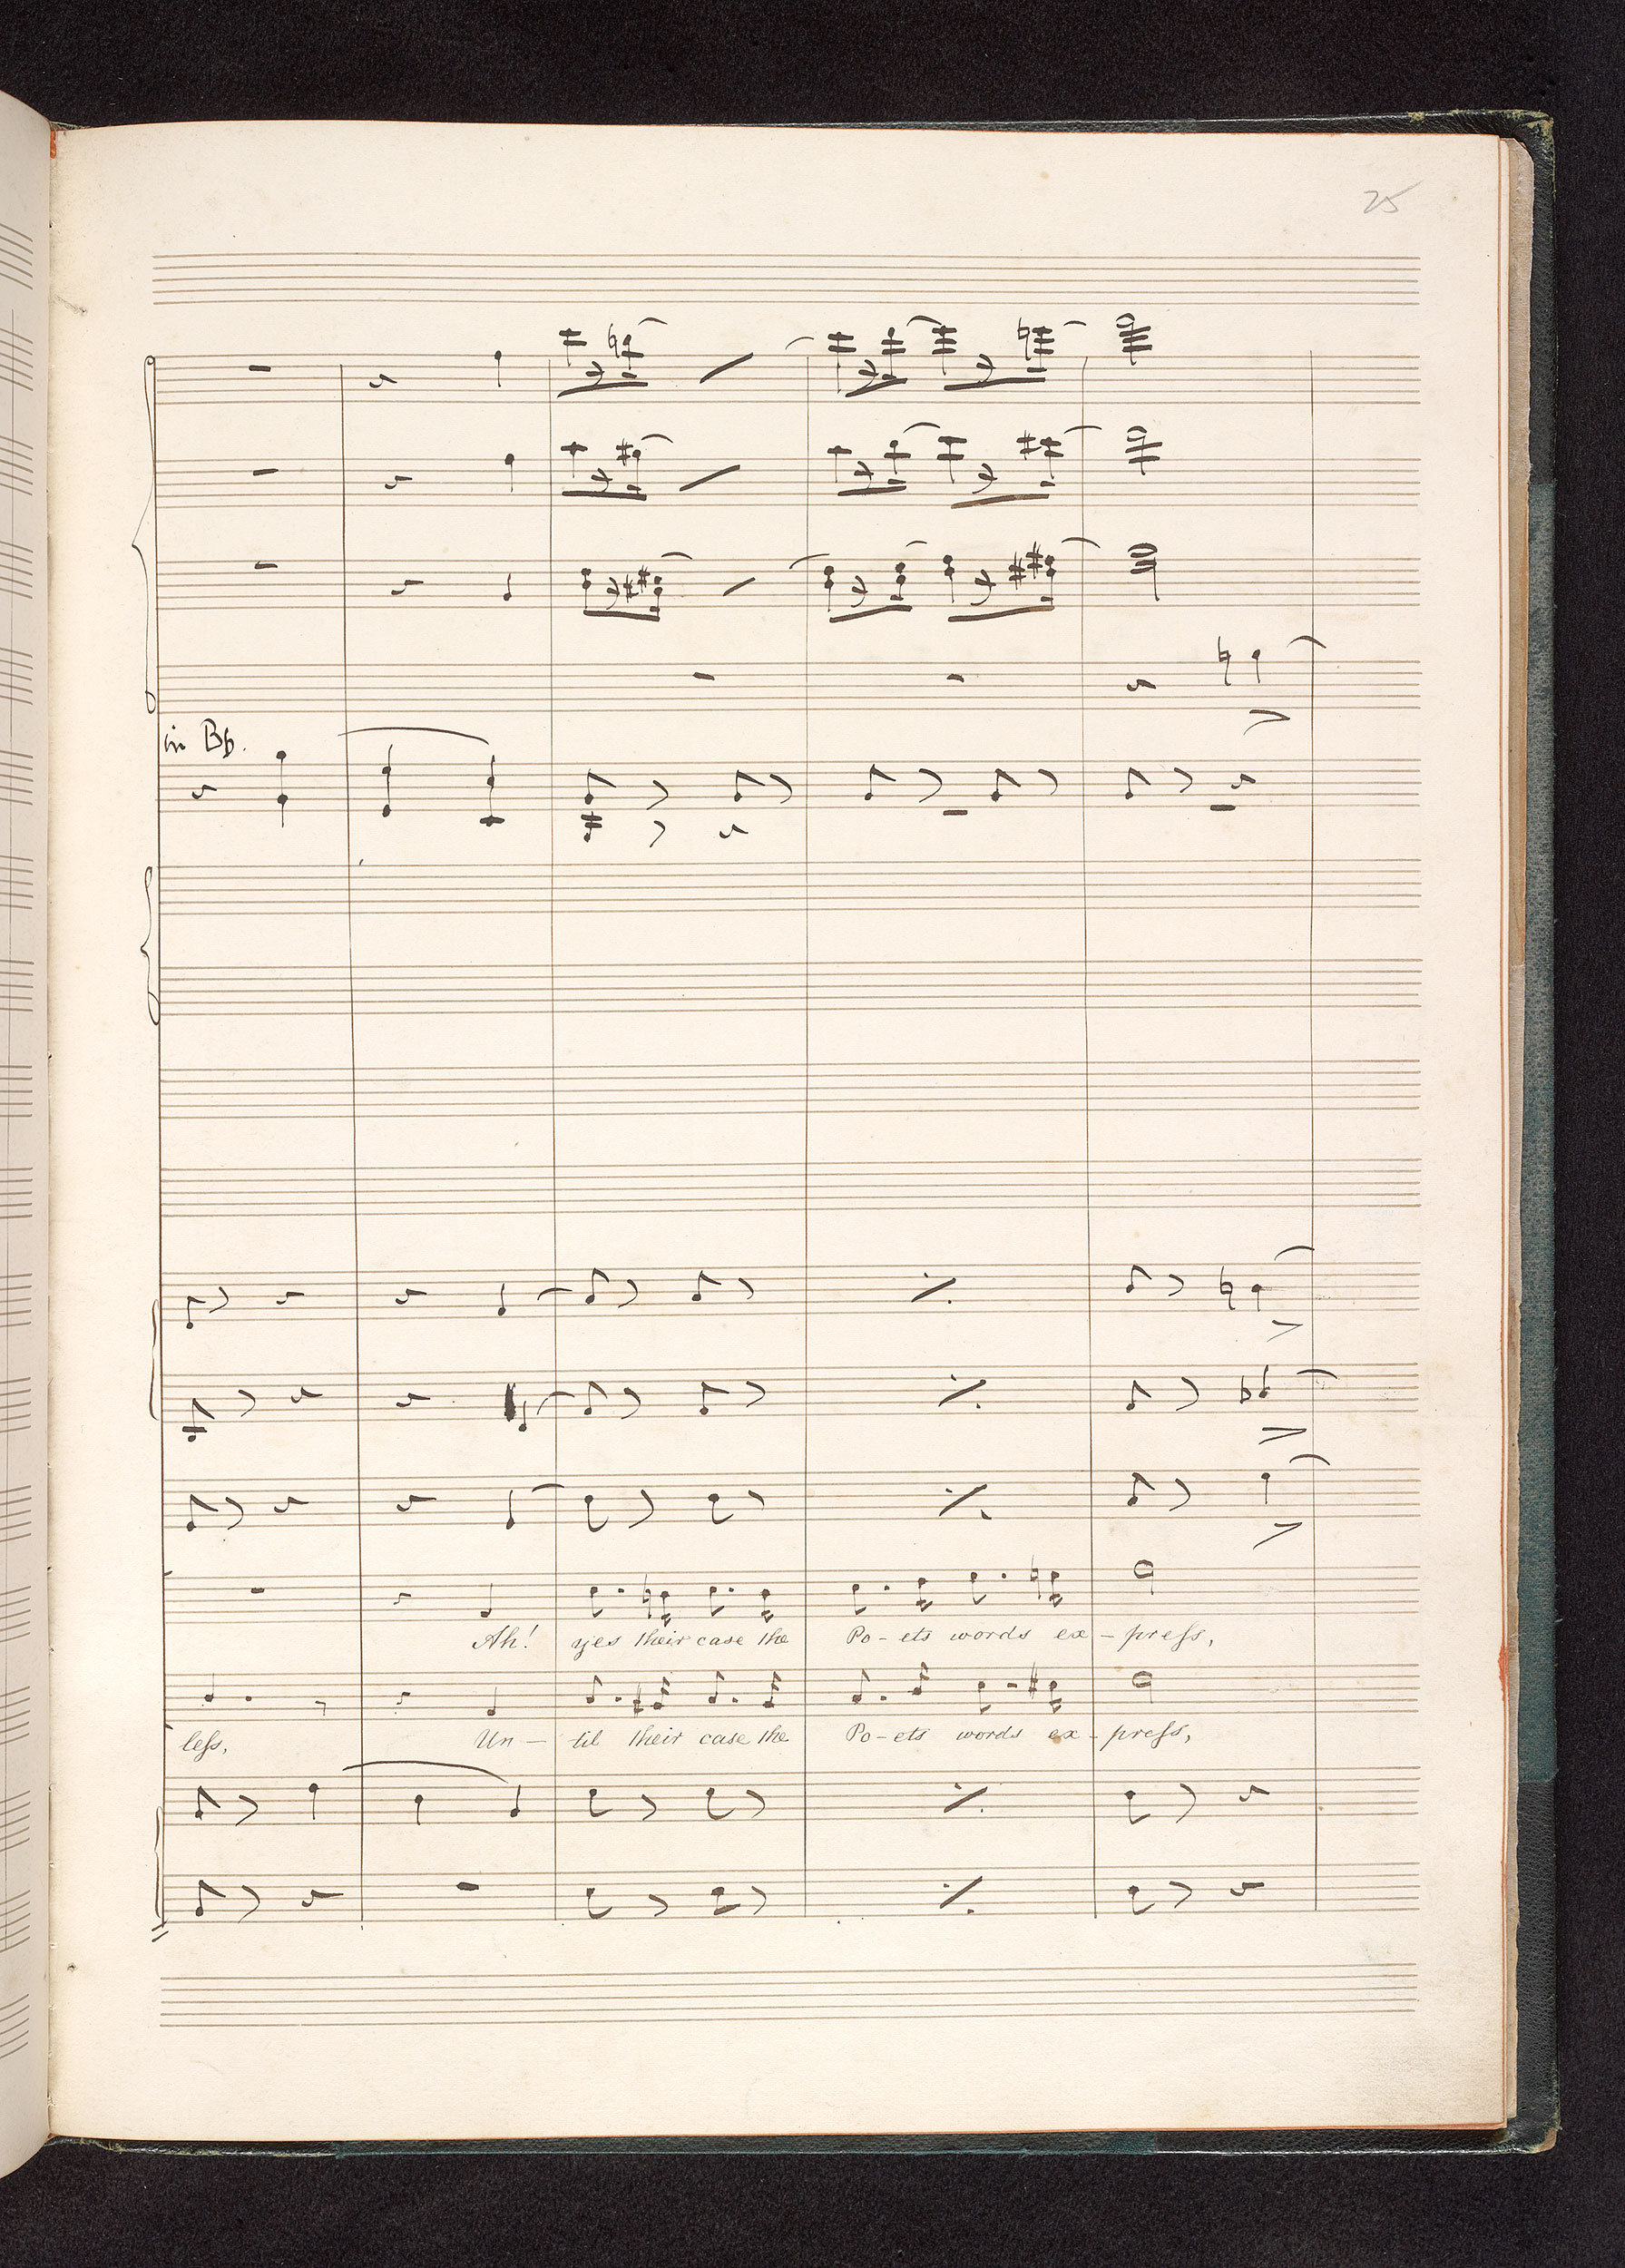 25
in Bb.
Ah! yes their case the Po-ets words ex-preſs,
leſs, Un-til their case the Po-ets words ex-preſs,